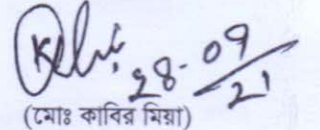 28-09/21
(মোঃ কাবির মিয়া)